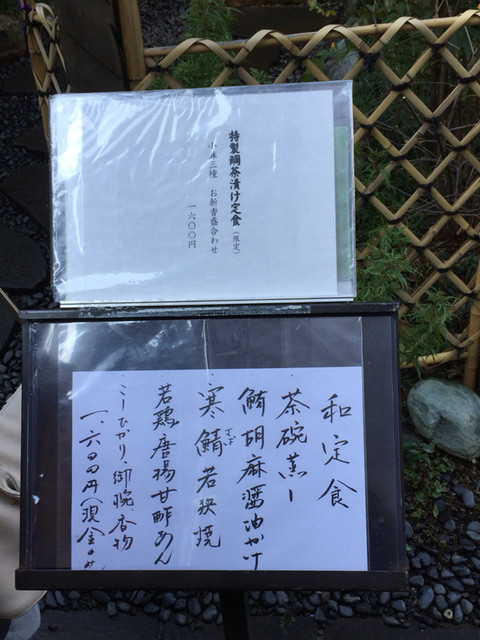 特製鯛茶漬け定食（限定）
小鉢三種　お新香盛合わせ
一六〇〇円
和定食
茶碗蒸し
鮪胡麻醤油かけ
寒鯖若狭焼
さば
若鶏唐揚甘酢あん
こしひかり、御椀、香物
一、六〇〇円（現金のみ